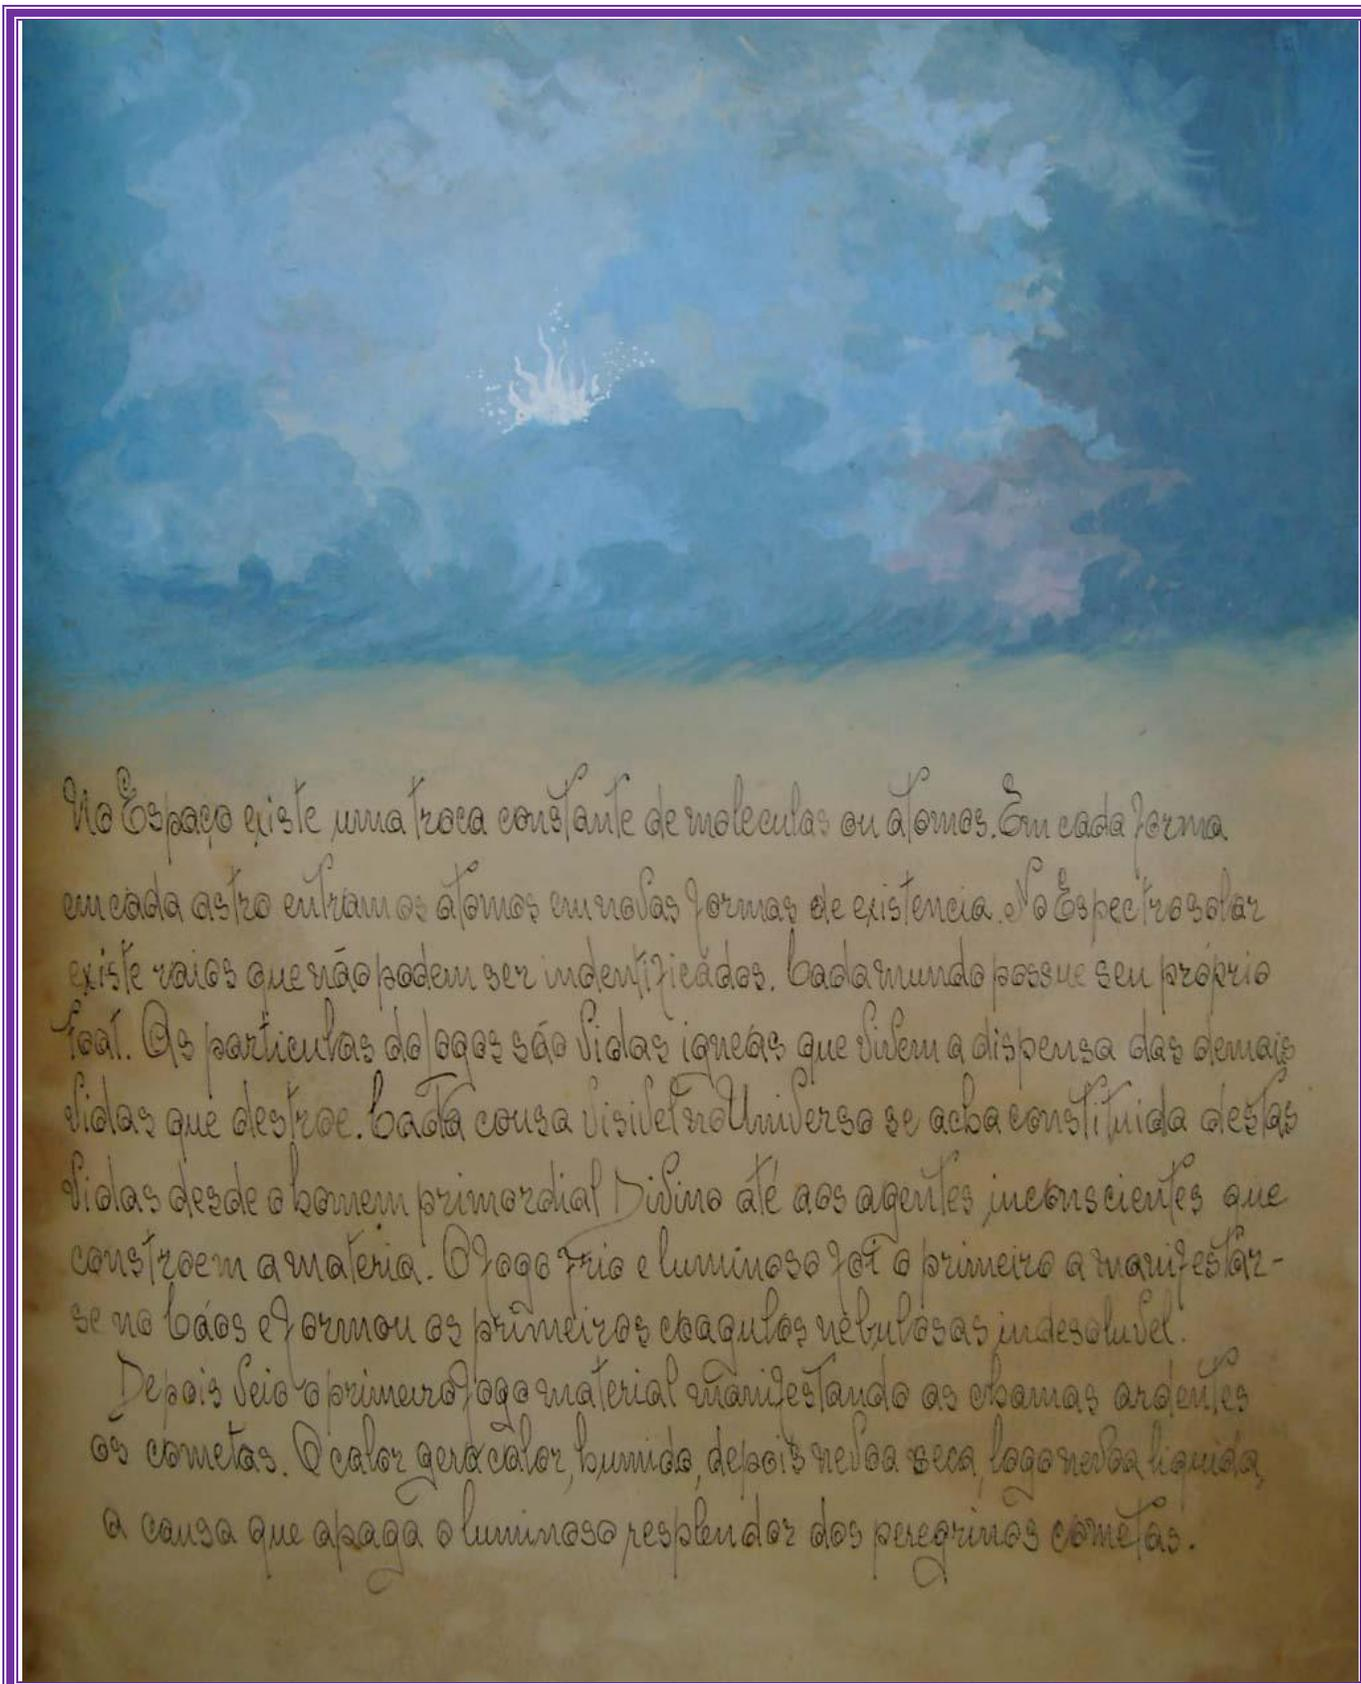 No Espaço existe uma troca constante de moleculas ou átomos. Em cada forma
em cada astro entram os átomos em novas formas de existencia. No Espectro solar
existe raios que não podem ser indentificados. Cada mundo possue seu próprio
Foat. As particulas do fogos são vidas igneas que vivem a dispensa das demais
vidas que destroe. Cada cousa visivel no Universo se acha constituida destas
vidas desde o homem primordial Divino até aos agentes inconscientes que
constroem a materia. O fogo frio e luminoso foi o primeiro a manifestar-
se no Cáos e formou os primeiros coagulos nebulosas indesoluvel.
Depois veio o primeiro fogo material manifestando as chamas ardentes
os cometas. O calor gera calor, humido, depois nevoa seca, logo nevoa liquida,
a causa que apaga o luminoso resplendor dos peregrinos cometas.